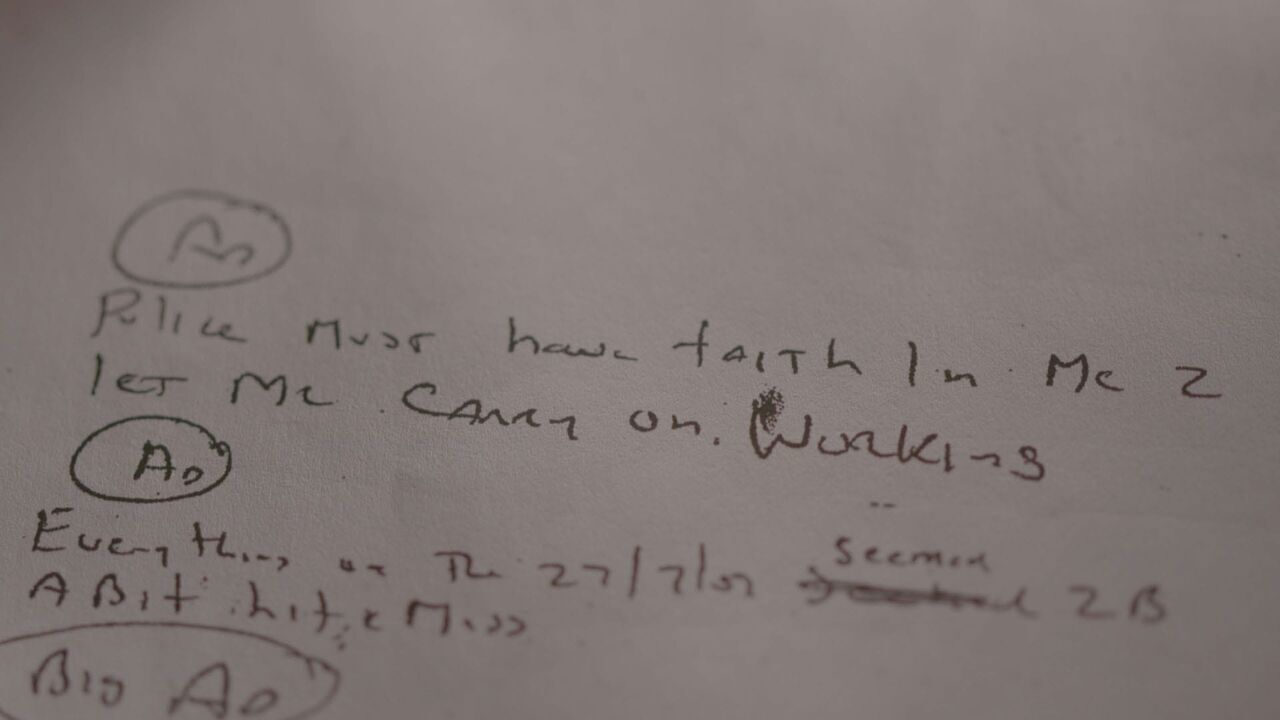 AD
Police Must have faith In Me 2
let Me Carry on. Working
AD
Everything on The 27/7/07 Seemed 2B
A Bit hit & Miss
Big AD